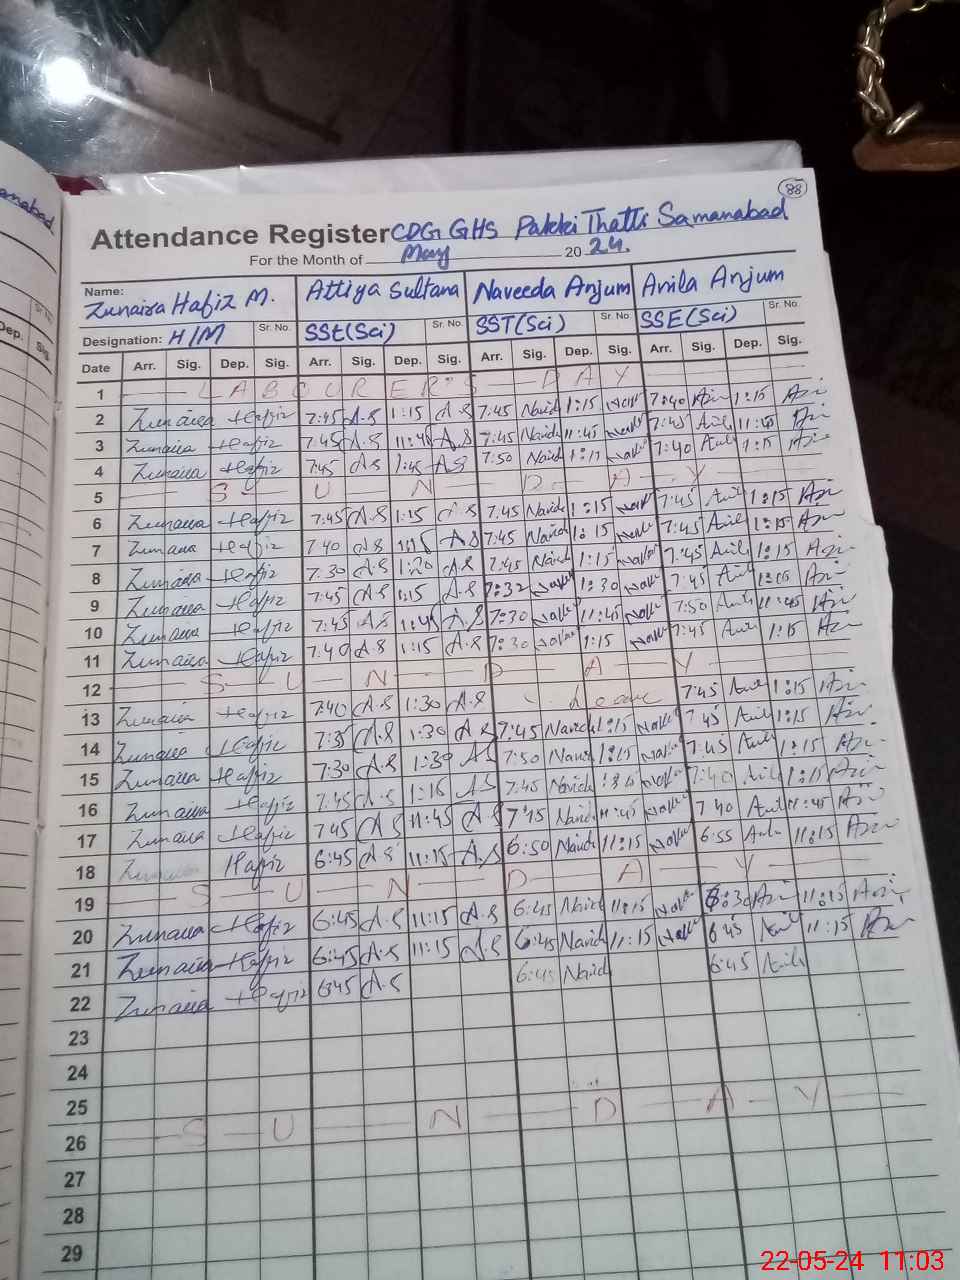 88
Attendance Register CDG GHS Pakki Thatti Samanabad
For the Month of May 2024.
Name: Zunaira Hafiz M. Attiya Sultana Naveeda Anjum Anila Anjum
Designation: H/M Sr. No. SSE(Sci) Sr. No. SST(Sci) Sr. No. SSE(Sci) Sr. No.
Date Arr. Sig. Dep. Sig. Arr. Sig. Dep. Sig. Arr. Sig. Dep. Sig. Arr. Sig. Dep. Sig.
1 DAY
2 Zunaira Hafiz 7:45 A.S 1:15 A.S 7:45 Navid 1:15 7:40 1:15
3 Zunaira Hafiz 7:45 A.S 11:45 A.S 7:45 Navid 11:45 7:45 Anil 11:45
4 Zunaira Hafiz 7:45 A.S 1:45 A.S 7:50 Navid 7:40 Anil 1:15
5 S U N D A Y
6 Zunaira Hafiz 7:45 A.S 1:15 A.S 7:45 Navid 1:15 7:45 Anil 1:15
7 Zunaira Hafiz 7:40 A.S A.S 7:45 Navid 1:15 7:45 Anil 1:15
8 Zunaira Hafiz 7:30 A.S 1:20 A.S 7:45 Navid 1:15 7:45 Anil 1:15
9 Zunaira Hafiz 7:45 A.S 1:15 A.S 7:32 1:30 7:45 Anil
10 Zunaira Hafiz 7:45 A.S 11:45 A.S 7:30 11:45 7:50 Anil 11:45
11 Zunaira Hafiz 7:40 A.S 1:15 A.S 7:30 1:15 7:45 Anil 1:15
12 S U N D A Y
13 Zunaira Hafiz 7:40 A.S 1:30 A.S Leave 7:45 Anil 1:15
14 Zunaira Hafiz 7:35 A.S 1:30 A.S 7:45 Navid 1:15 7:45 Anil 1:15
15 Zunaira Hafiz 7:30 A.S 1:30 A.S 7:50 Navid 1:15 7:45 Anil 1:15
16 Zunaira Hafiz 7:45 A.S 1:16 A.S 7:45 Navid 7:40 Anil 1:15
17 Zunaira Hafiz 7:45 A.S 11:45 A.S Navid 11:45 7:40 Anil 11:45
18 Zunaira Hafiz 6:45 A.S 11:15 A.S 6:50 Navid 11:15 6:55 Anil 11:15
19 S U N D A Y
20 Zunaira Hafiz 6:45 A.S 11:15 A.S 6:45 Navid 11:15 6:30 11:15
21 Zunaira Hafiz 6:45 A.S 11:15 A.S 6:45 Navid 11:15 6:45 Anil 11:15
22 Zunaira Hafiz 6:45 A.S 6:45 Navid 6:45 Anil
23
24
25
26 S U N D A Y
27
28
29
22-05-24 11:03